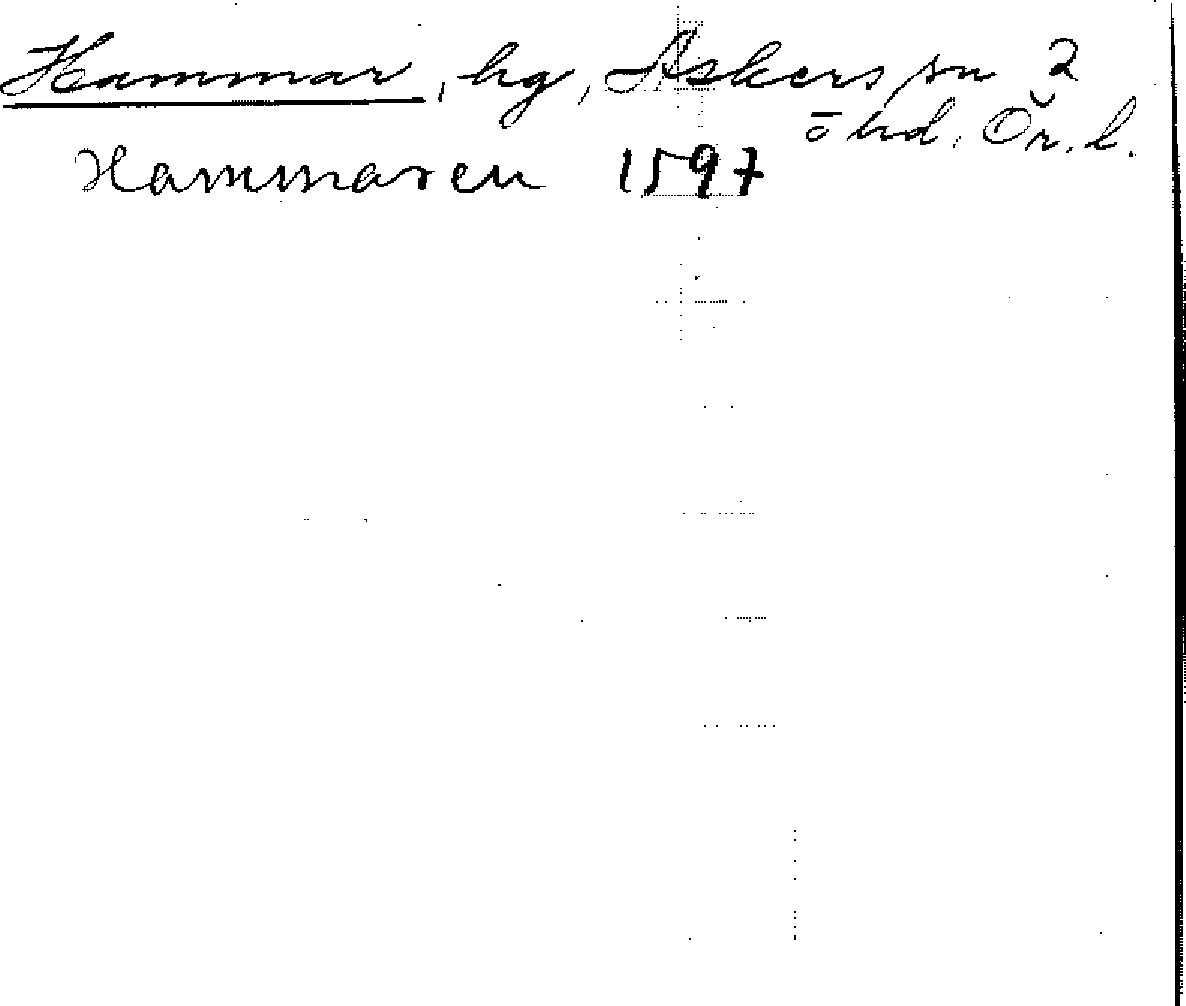 Hammar, hg, Askers sn 2
ö hd. Ör. l.
Hammaren 1597